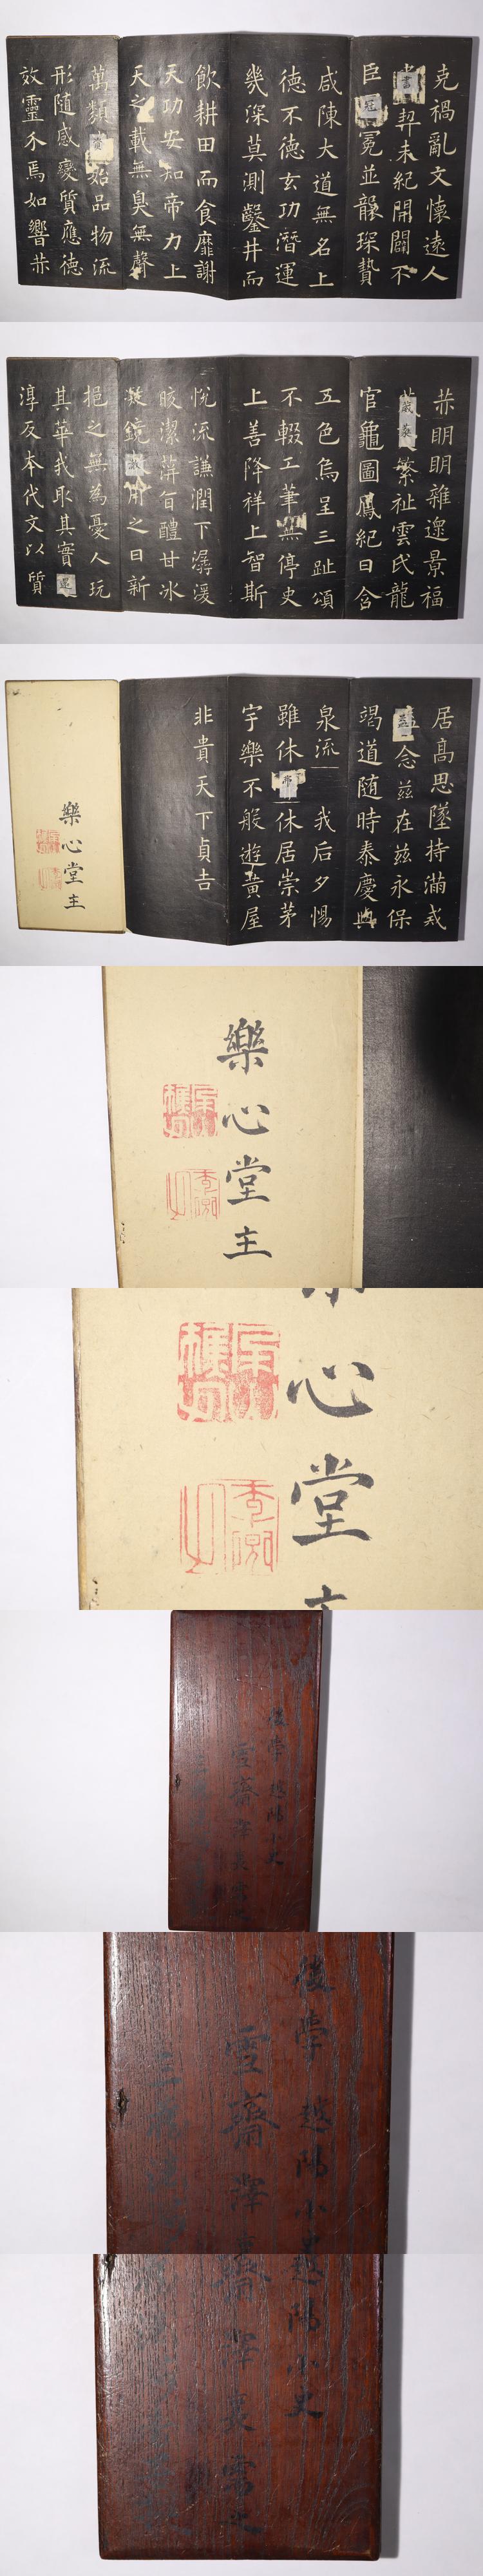 克禍亂文懷遠人
書契未紀開闢不
臣冠冕並襲琛贄
咸陳大道無名上
德不德玄功潛運
幾深莫測鑿井而
飲耕田而食靡謝
天功安知帝力上
天之載無臭無聲
萬類資始品物流
形隨感變質應德
效靈介焉如響赫
赫明明雜遝景福
葳蕤繁祉雲氏龍
官龜圖鳳紀日含
五色烏呈三趾頌
不輟工筆無停史
上善降祥上智斯
悅流謙潤下潺湲
皎潔蓱旨醴甘冰
凝鏡澈用之日新
挹之無為憂人玩
其華我取其實還
淳反本代文以質
居高思墜持滿戒
盈念茲在茲永保
竭道隨時泰慶與
泉流我后夕惕
雖休弗休居崇茅
宇樂不般遊黃屋
非貴天下貞吉
樂心堂主
樂心堂主
心堂
後學越陽小史
後學越陽小
越陽小史